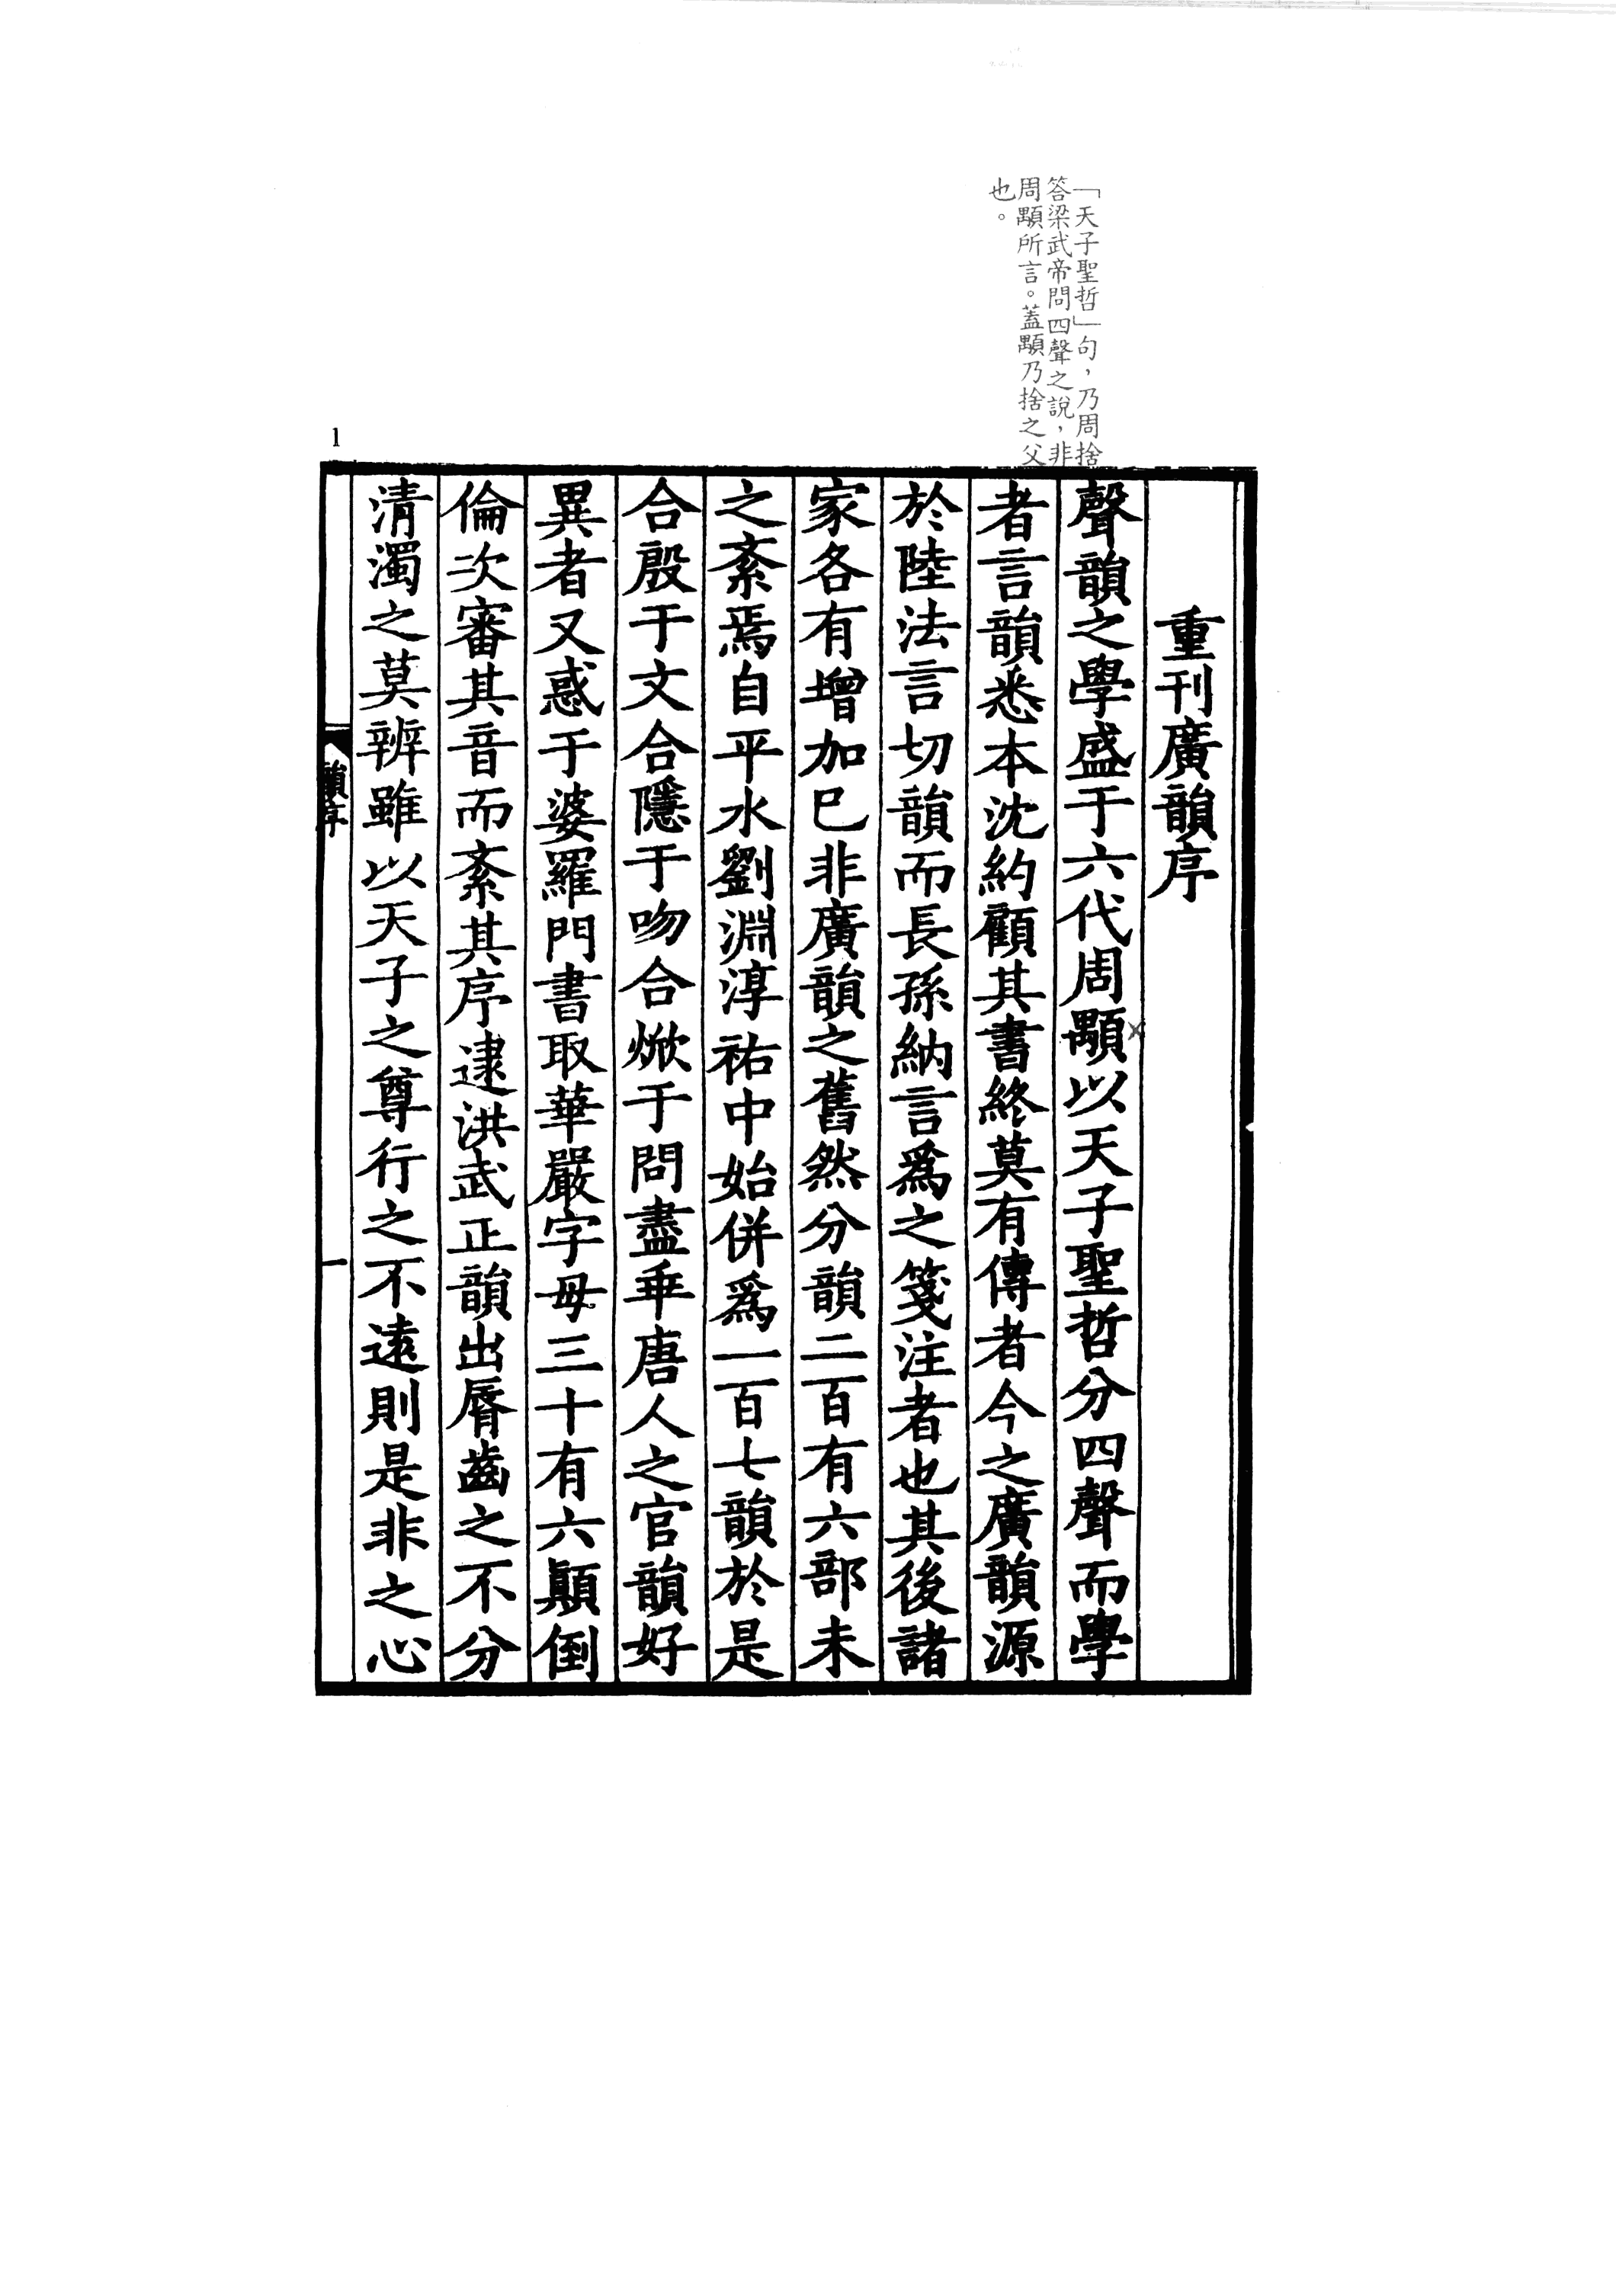 「天子聖哲」句，乃周捨
答梁武帝問四聲之說，非
周顒所言。蓋顒乃捨之父
也。
1
重刊廣韻序
聲韻之學盛于六代周顒以天子聖哲分四聲而學
者言韻悉本沈約顧其書終莫有傳者今之廣韻源
於陸法言切韻而長孫納言爲之箋注者也其後諸
家各有增加已非廣韻之舊然分韻二百有六部未
之紊焉自平水劉淵淳祐中始併爲一百七韻於是
合殷于文合隱于吻合焮于問盡乖唐人之官韻好
異者又惑于婆羅門書取華嚴字母三十有六顛倒
倫次審其音而紊其序逮洪武正韻出脣齒之不分
清濁之莫辨雖以天子之尊行之不遠則是非之心
韻序
一